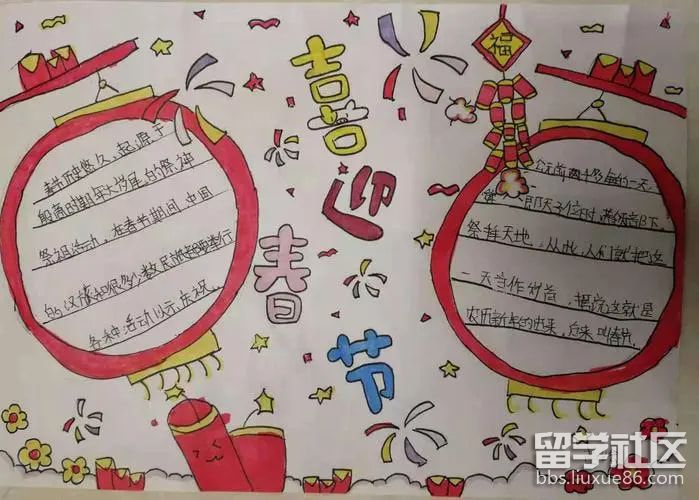 喜迎
春节
福
春节历史悠久,起源于
殷商时期年头岁尾的祭神
祭祖活动。在春节期间,中国
的汉族和很多少数民族都要举行
各种活动以示庆祝。
公元前两千多年的一天,
舜即天子位时,带领部下,
祭拜天地,从此,人们就把这
一天当作岁首,据说这就是
农历新年的由来,后来叫春节。
留学社区
bbs.liuxue86.com